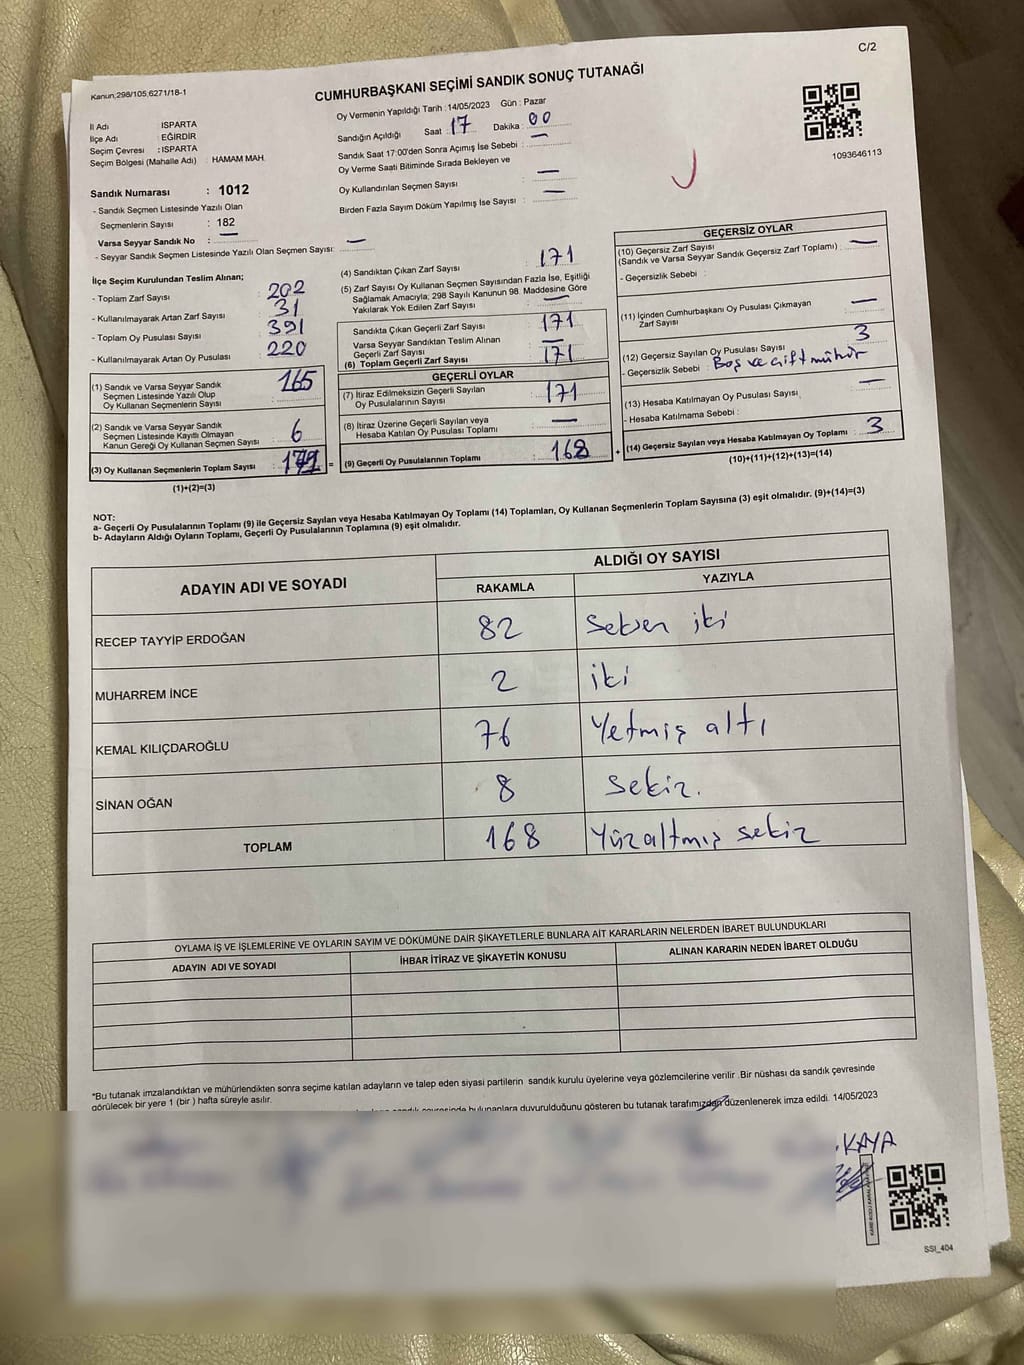 C/2
Kanun,298/105,6271/18-1
CUMHURBAŞKANI SEÇİMİ SANDIK SONUÇ TUTANAĞI
İl Adı ISPARTA
İlçe Adı : EĞİRDİR
Seçim Çevresi : ISPARTA
Seçim Bölgesi (Mahalle Adı) : HAMAM MAH.
Sandık Numarası : 1012
- Sandık Seçmen Listesinde Yazılı Olan
Seçmenlerin Sayısı : 182
Varsa Seyyar Sandık No : —
- Seyyar Sandık Seçmen Listesinde Yazılı Olan Seçmen Sayısı: —
Oy Vermenin Yapıldığı Tarih : 14/05/2023 Gün : Pazar
Sandığın Açıldığı Saat : 17 Dakika : 00
Sandık Saat 17:00'den Sonra Açımış İse Sebebi : —
Oy Verme Saati Bitiminde Sırada Bekleyen ve
Oy Kullandırılan Seçmen Sayısı : —
Birden Fazla Sayım Döküm Yapılmış İse Sayısı : —
1093646113
İlçe Seçim Kurulundan Teslim Alınan;
- Toplam Zarf Sayısı : 202
- Kullanılmayarak Artan Zarf Sayısı : 31
- Toplam Oy Pusulası Sayısı : 391
- Kullanılmayarak Artan Oy Pusulası : 220
(1) Sandık ve Varsa Seyyar Sandık
Seçmen Listesinde Yazılı Olup
Oy Kullanan Seçmenlerin Sayısı : 165
(2) Sandık ve Varsa Seyyar Sandık
Seçmen Listesinde Kayıtlı Olmayan
Kanun Gereği Oy Kullanan Seçmen Sayısı : 6
(3) Oy Kullanan Seçmenlerin Toplam Sayısı : =
(1)+(2)=(3)
(4) Sandıktan Çıkan Zarf Sayısı : 171
(5) Zarf Sayısı Oy Kullanan Seçmen Sayısından Fazla İse, Eşitliği
Sağlamak Amacıyla; 298 Sayılı Kanunun 98. Maddesine Göre
Yakılarak Yok Edilen Zarf Sayısı : —
Sandıkta Çıkan Geçerli Zarf Sayısı : 171
Varsa Seyyar Sandıktan Teslim Alınan
Geçerli Zarf Sayısı : —
(6) Toplam Geçerli Zarf Sayısı : 171
GEÇERLİ OYLAR
(7) İtiraz Edilmeksizin Geçerli Sayılan
Oy Pusulalarının Sayısı : 171
(8) İtiraz Üzerine Geçerli Sayılan veya
Hesaba Katılan Oy Pusulası Toplamı : —
(9) Geçerli Oy Pusulalarının Toplamı : 168 +
GEÇERSİZ OYLAR
(10) Geçersiz Zarf Sayısı
(Sandık ve Varsa Seyyar Sandık Geçersiz Zarf Toplamı) : —
- Geçersizlik Sebebi :
(11) İçinden Cumhurbaşkanı Oy Pusulası Çıkmayan
Zarf Sayısı : —
(12) Geçersiz Sayılan Oy Pusulası Sayısı : 3
- Geçersizlik Sebebi : Boş ve çift mühür
(13) Hesaba Katılmayan Oy Pusulası Sayısı : —
- Hesaba Katılmama Sebebi :
(14) Geçersiz Sayılan veya Hesaba Katılmayan Oy Toplamı : 3
(10)+(11)+(12)+(13)=(14)
NOT:
a- Geçerli Oy Pusulalarının Toplamı (9) ile Geçersiz Sayılan veya Hesaba Katılmayan Oy Toplamı (14) Toplamları, Oy Kullanan Seçmenlerin Toplam Sayısına (3) eşit olmalıdır. (9)+(14)=(3)
b- Adayların Aldığı Oyların Toplamı, Geçerli Oy Pusulalarının Toplamına (9) eşit olmalıdır.
ADAYIN ADI VE SOYADI ALDIĞI OY SAYISI
RAKAMLA YAZIYLA
RECEP TAYYİP ERDOĞAN 82 Seksen iki
MUHARREM İNCE 2 iki
KEMAL KILIÇDAROĞLU 76 Yetmiş altı
SİNAN OĞAN 8 Sekiz.
TOPLAM 168 Yüzaltmış sekiz
OYLAMA İŞ VE İŞLEMLERİNE VE OYLARIN SAYIM VE DÖKÜMÜNE DAİR ŞİKAYETLERLE BUNLARA AİT KARARLARIN NELERDEN İBARET BULUNDUKLARI
ADAYIN ADI VE SOYADI İHBAR İTİRAZ VE ŞİKAYETİN KONUSU ALINAN KARARIN NEDEN İBARET OLDUĞU
"Bu tutanak imzalandıktan ve mühürlendikten sonra seçime katılan adayların ve talep eden siyasi partilerin sandık kurulu üyelerine veya gözlemcilerine verilir .Bir nüshası da sandık çevresinde
görülecek bir yere 1 (bir ) hafta süreyle asılır.
bulunanlara duyurulduğunu gösteren bu tutanak tarafımızdan düzenlenerek imza edildi. 14/05/2023
KAYA
SSI_404